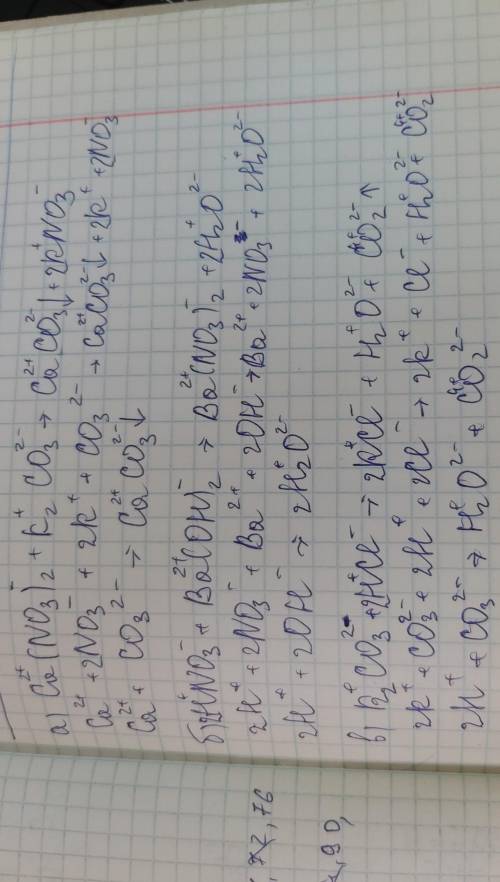 а) Ca²⁺(NO₃⁻)₂ + K₂⁺CO₃²⁻ → Ca²⁺CO₃²⁻↓ + 2K⁺NO₃⁻
Ca²⁺ + 2NO₃⁻ + 2K⁺ + CO₃²⁻ → Ca²⁺CO₃²⁻↓ + 2K⁺ + 2NO₃⁻
Ca²⁺ + CO₃²⁻ → Ca²⁺CO₃²⁻↓
б) 2H⁺NO₃⁻ + Ba²⁺(OH)₂⁻ → Ba²⁺(NO₃)₂⁻ + 2H₂⁺O²⁻
2H⁺ + 2NO₃⁻ + Ba²⁺ + 2OH⁻ → Ba²⁺ + 2NO₃⁻ + 2H₂⁺O²⁻
2H⁺ + 2OH⁻ → 2H₂⁺O²⁻
в) K₂⁺CO₃²⁻ + 2H⁺Cl⁻ → 2K⁺Cl⁻ + H₂⁺O²⁻ + C⁴⁺O₂²⁻↑
2K⁺ + CO₃²⁻ + 2H⁺ + 2Cl⁻ → 2K⁺ + Cl⁻ + H₂⁺O²⁻ + C⁴⁺O₂²⁻
2H⁺ + CO₃²⁻ → H₂⁺O²⁻ + C⁴⁺O₂²⁻
, 72, 76
, 90,